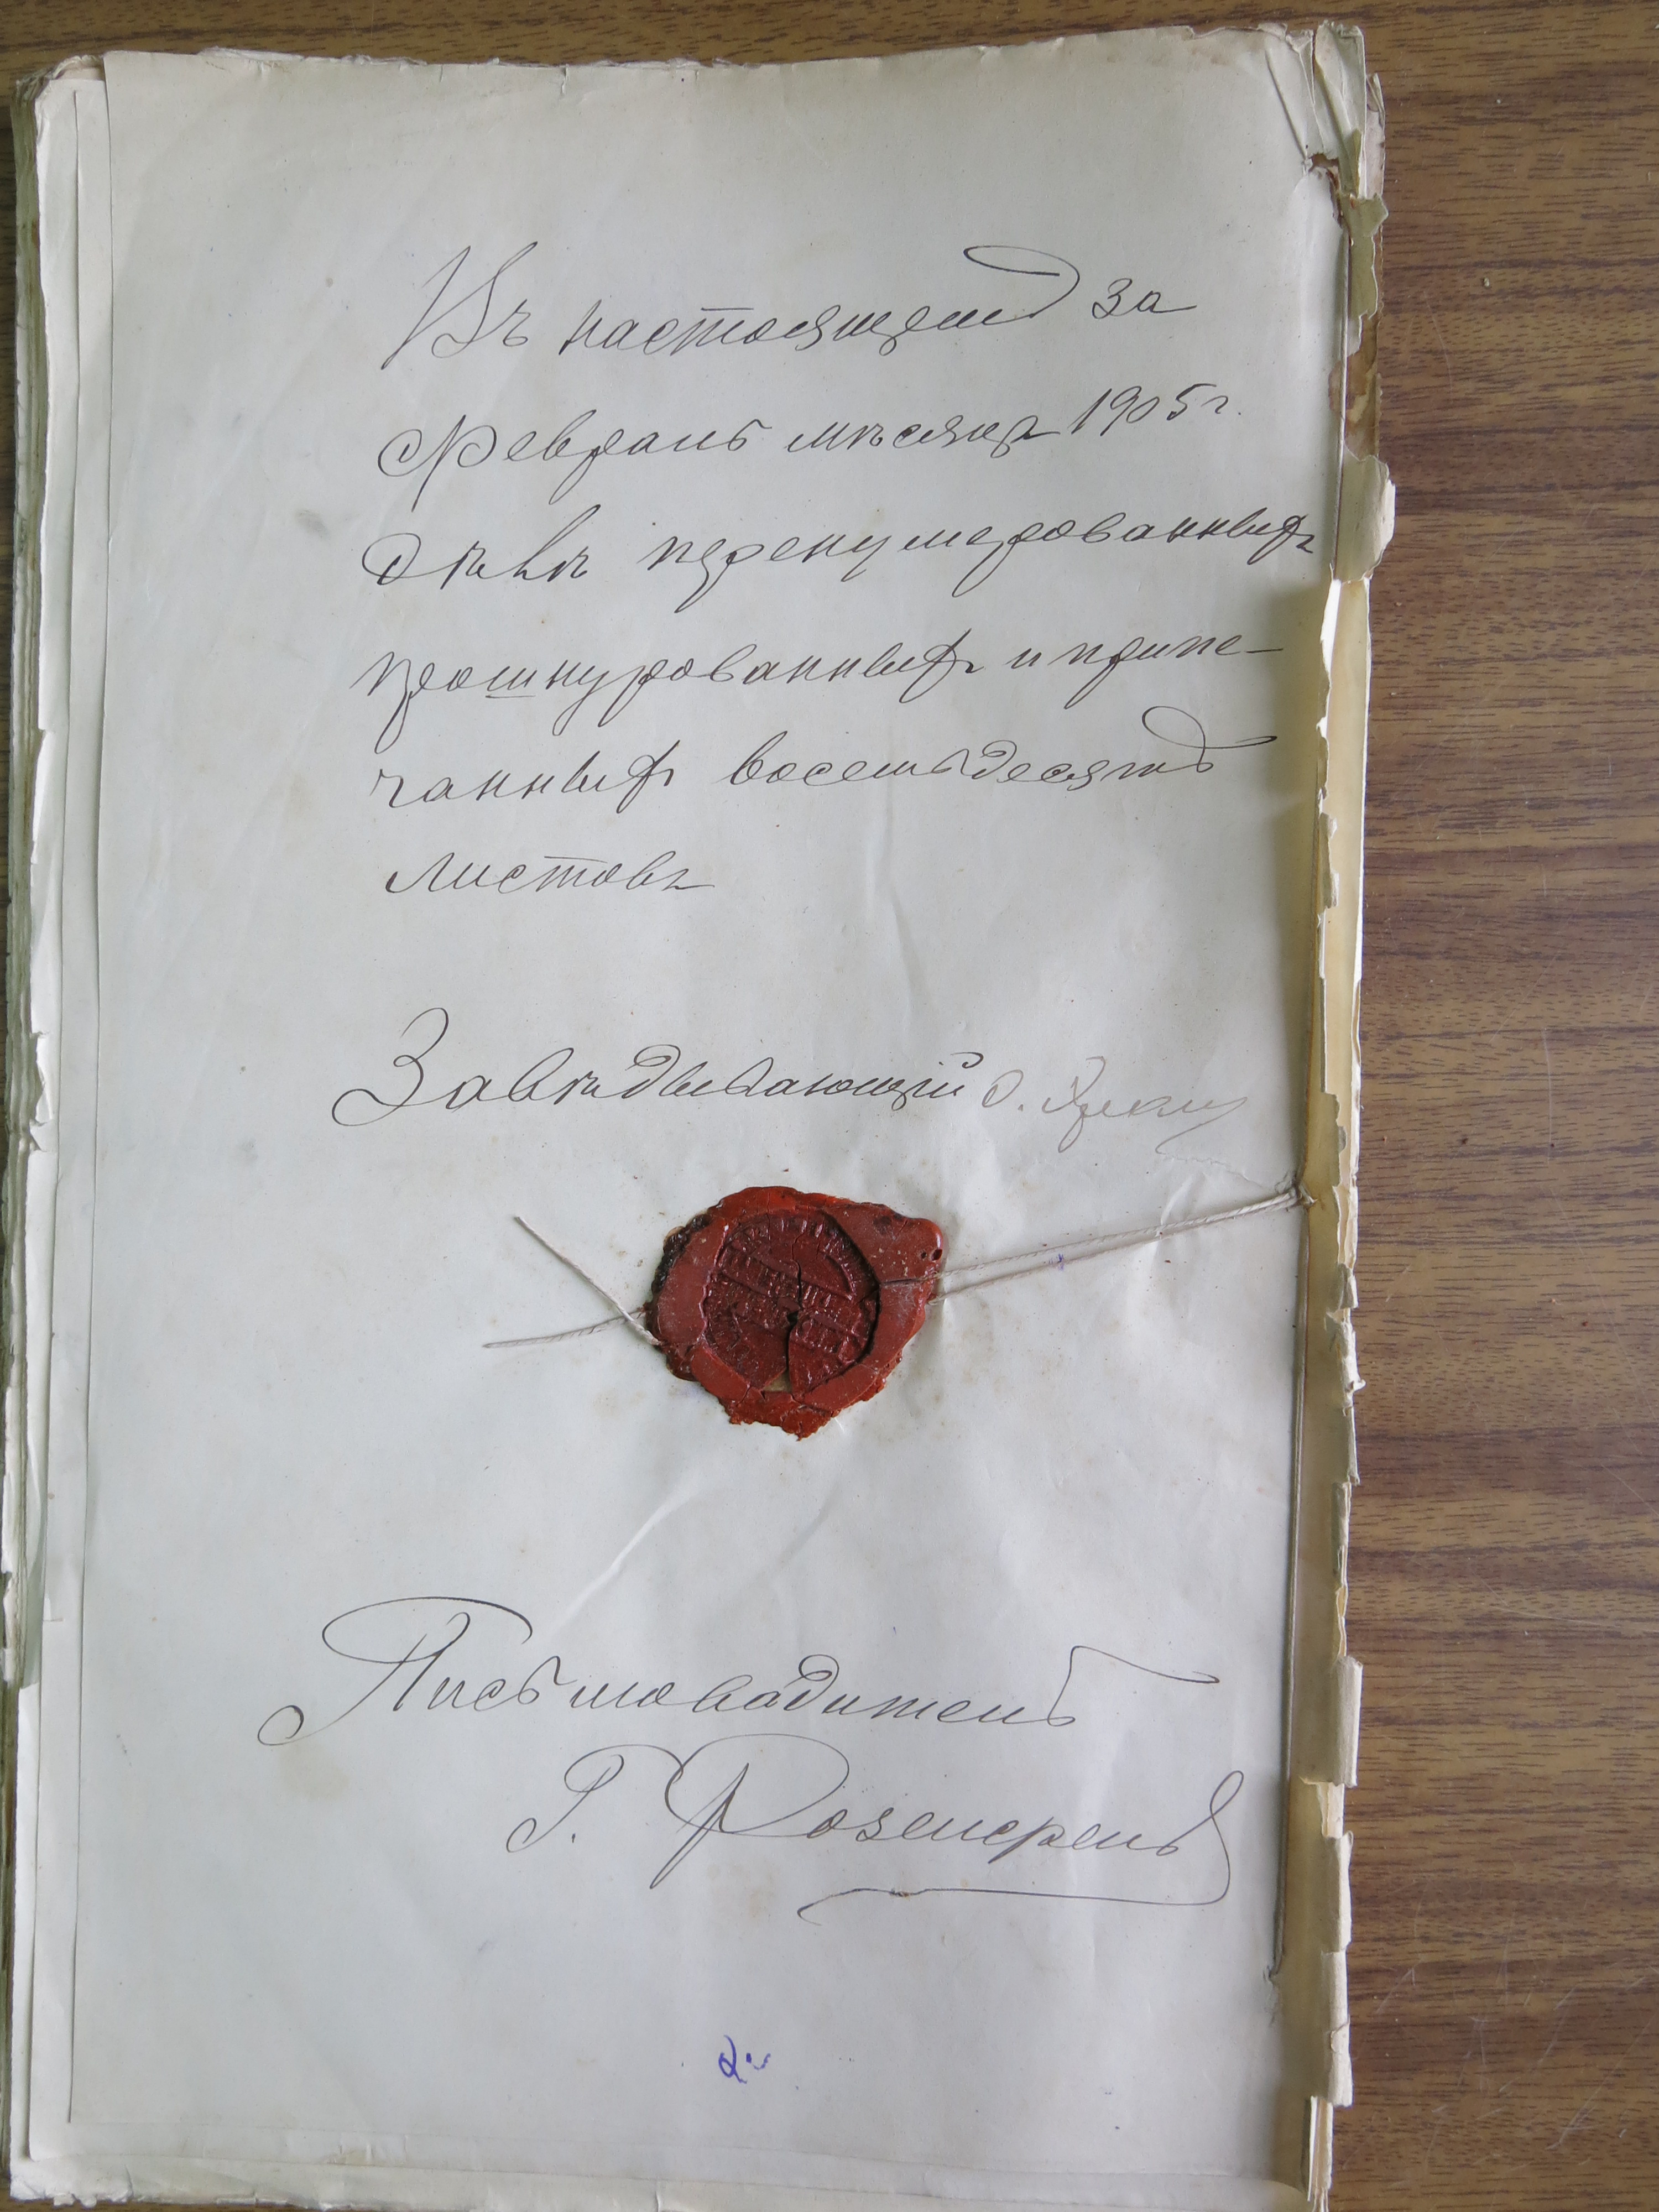 Въ настоящемъ за
Февраль мѣсяцъ 1905 г.
дѣлѣ перенумерованныхъ
прошнурованныхъ и припе-
чанныхъ восемьдесятъ
листовъ
Завѣдывающій
Письмоводитель
Г.